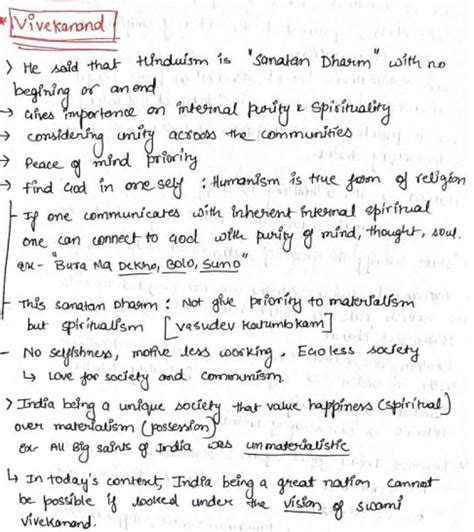 * Vivekanand
> He said that Hinduism is "Sanatan Dharm" with no
begining or an end
→ Gives importance on internal purity & Spirituality
→ considering unity across the communities
→ Peace of mind priority
→ find God in oneself : Humanism is true form of religion
- If one communicates with inherent internal spiritual
one can connect to God with purity of mind, thought, soul.
ex- "Bura Na Dekho, Bolo, Suno"
- This sanatan dharm : Not give priority to materialism
but spiritualism [vasudev katumbkam]
- No selfishness, motive less working, Egoless society
↳ Love for society and communism.
> India being a unique society that value happiness (spiritual)
over materialism (possession)
ex- All Big saints of India was unmaterialistic
↳ In today's context, India being a great nation, cannot
be possible if looked under the vision of swami
vivekanand.